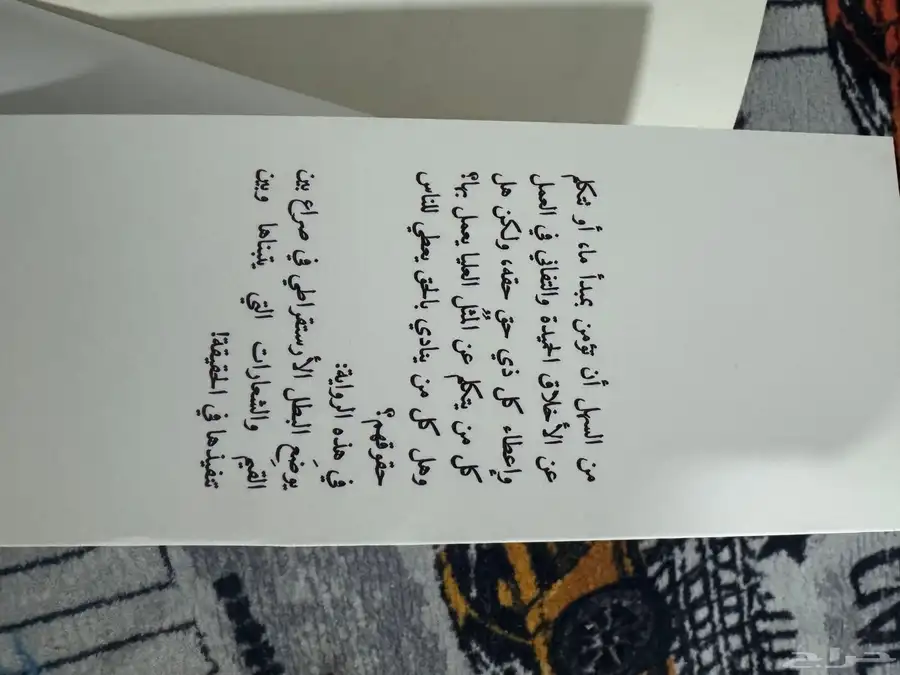 من السهل أن تؤمن بمبدأ ما، أو تتكلم
عن الأخلاق الحميدة والتفاني في العمل
وإعطاء كل ذي حق حقه، ولكن هل
كل من يتكلم عن المُثل العليا يعمل بها؟
وهل كل من ينادي بالحق يعطي للناس
حقوقهم؟
في هذه الرواية:
يوضِع البطل الأرستقراطي في صراع بين
القيم والشعارات التي يتبناها وبين
تنفيذها في الحقيقة!
حراج